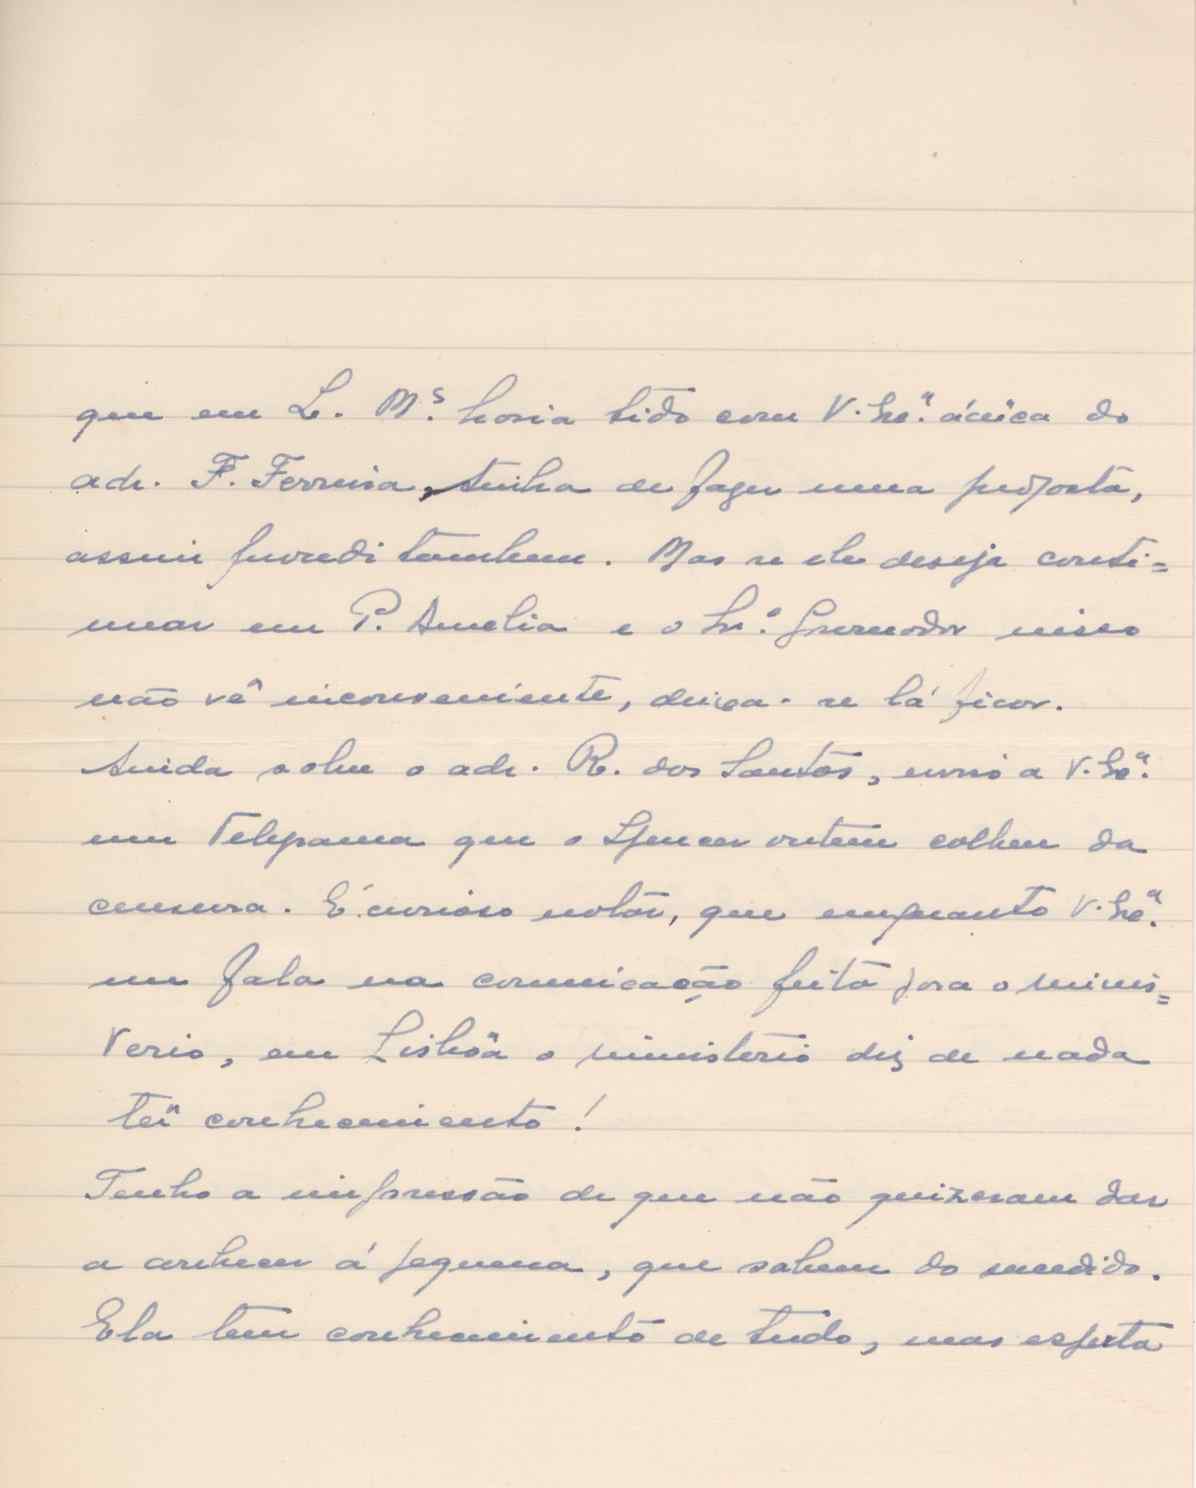 que em L. M.s havia tido com V. Exª. ácêrca do
adr. F. Ferreira, tinha de fazer uma proposta,
assim procedi tambem. Mas se ele deseja conti=
nuar em P. Amelia e o Snr. Governador nisso
não vê inconveniente, deixa-se lá ficar.
Ainda sobre o adr. R. dos Santos, envio a V. Exª.
um Telegrama que o Spencer ontem colheu da
censura. É curioso notar, que emquanto V. Exª.
me fala na comunicação feita para o minis=
terio, em Lisbôa o ministerio diz de nada
ter conhecimento!
Tenho a impressão de que não quizeram dar
a conhecer á pequena, que sabem do sucedido.
Ela tem conhecimento de tudo, mas esperta